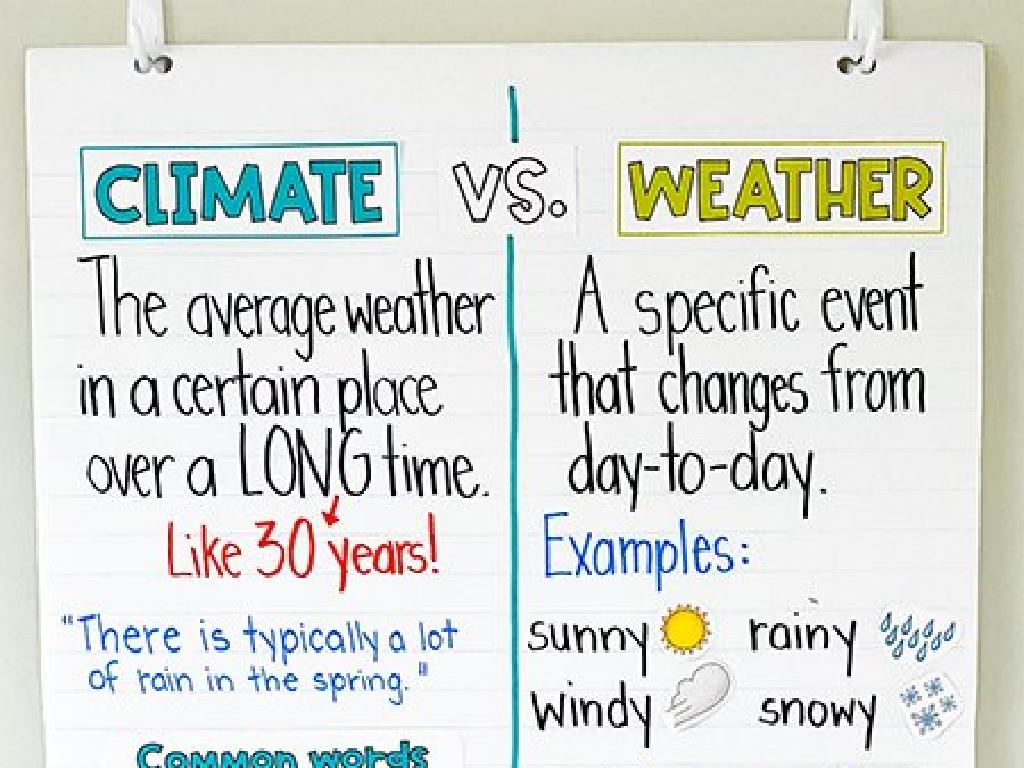 CLIMATE VS. WEATHER
The average weather
in a certain place
over a LONG time.
Like 30 years!
"There is typically a lot
of rain in the spring."
Common words
A specific event
that changes from
day-to-day.
Examples:
sunny rainy
windy snowy